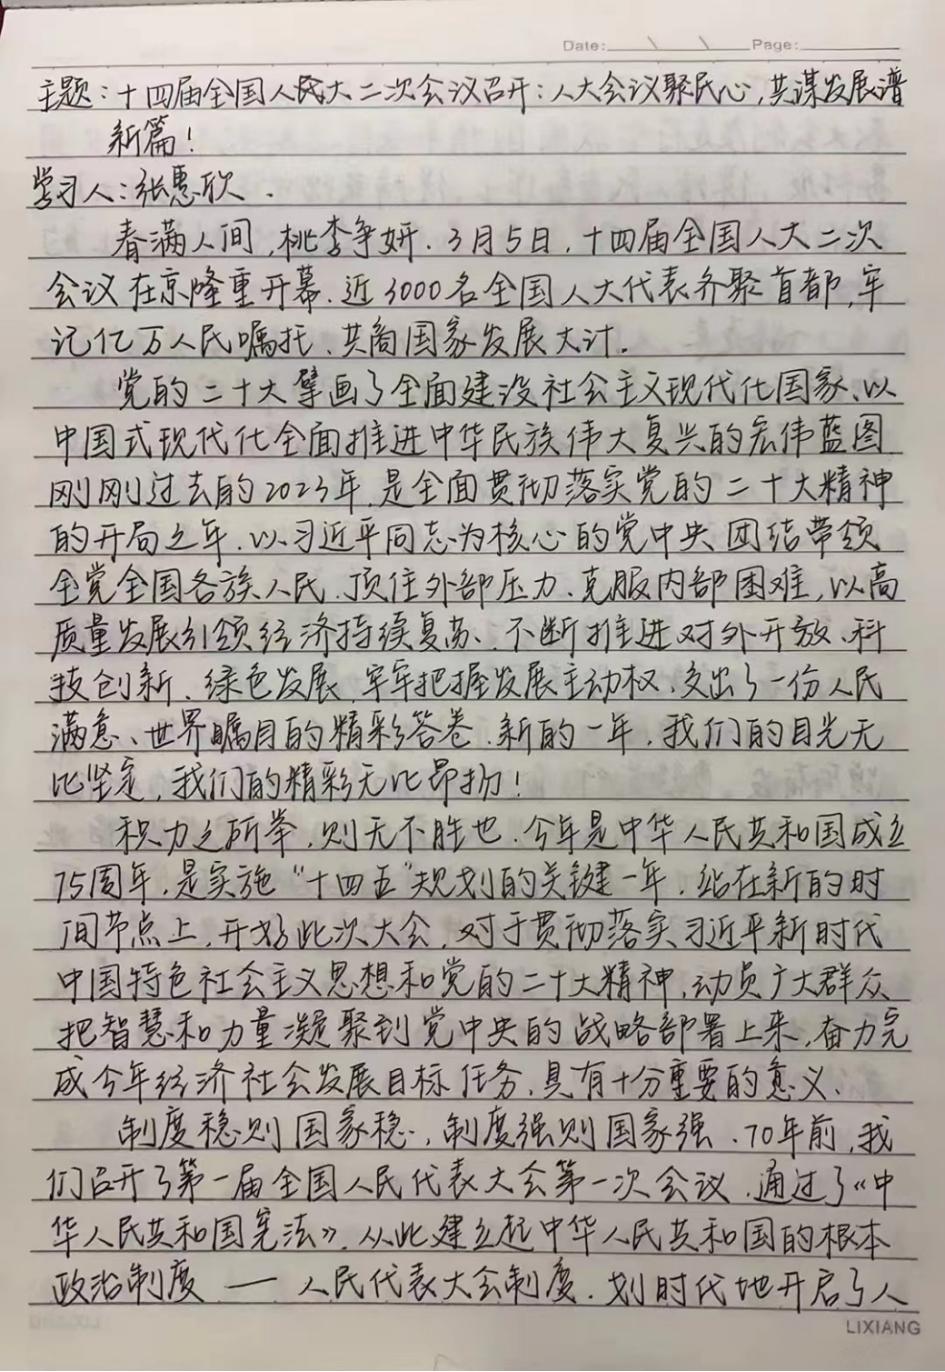 Date: \ \ Page:
主题:十四届全国人民大二次会议召开:人大会议聚民心,共谋发展谱
新篇!
学习人:张惠欣.
春满人间,桃李争妍.3月5日,十四届全国人大二次
会议在京隆重开幕.近3000名全国人大代表齐聚首都,牢
记亿万人民嘱托、共商国家发展大计。
党的二十大擘画了全面建设社会主义现代化国家、以
中国式现代化全面推进中华民族伟大复兴的宏伟蓝图.
刚刚过去的2023年,是全面贯彻落实党的二十大精神
的开局之年.以习近平同志为核心的党中央团结带领
全党全国各族人民.顶住外部压力、克服内部困难,以高
质量发展引领经济持续复苏、不断推进对外开放、科
技创新、绿色发展,牢牢把握发展主动权,交出了一份人民
满意、世界瞩目的精彩答卷.新的一年,我们的目光无
比坚定,我们的精彩无比昂扬!
积力之所举,则无不胜也.今年是中华人民共和国成立
75周年,是实施“十四五”规划的关键一年.站在新的时
间节点上,开好此次大会,对于贯彻落实习近平新时代
中国特色社会主义思想和党的二十大精神,动员广大群众
把智慧和力量凝聚到党中央的战略部署上来,奋力完
成今年经济社会发展目标任务,具有十分重要的意义.
制度稳则国家稳,制度强则国家强.70年前,我
们召开了第一届全国人民代表大会第一次会议.通过了《中
华人民共和国宪法》.从此建立起中华人民共和国的根本
政治制度——人民代表大会制度.划时代地开启了人
LIXIANG